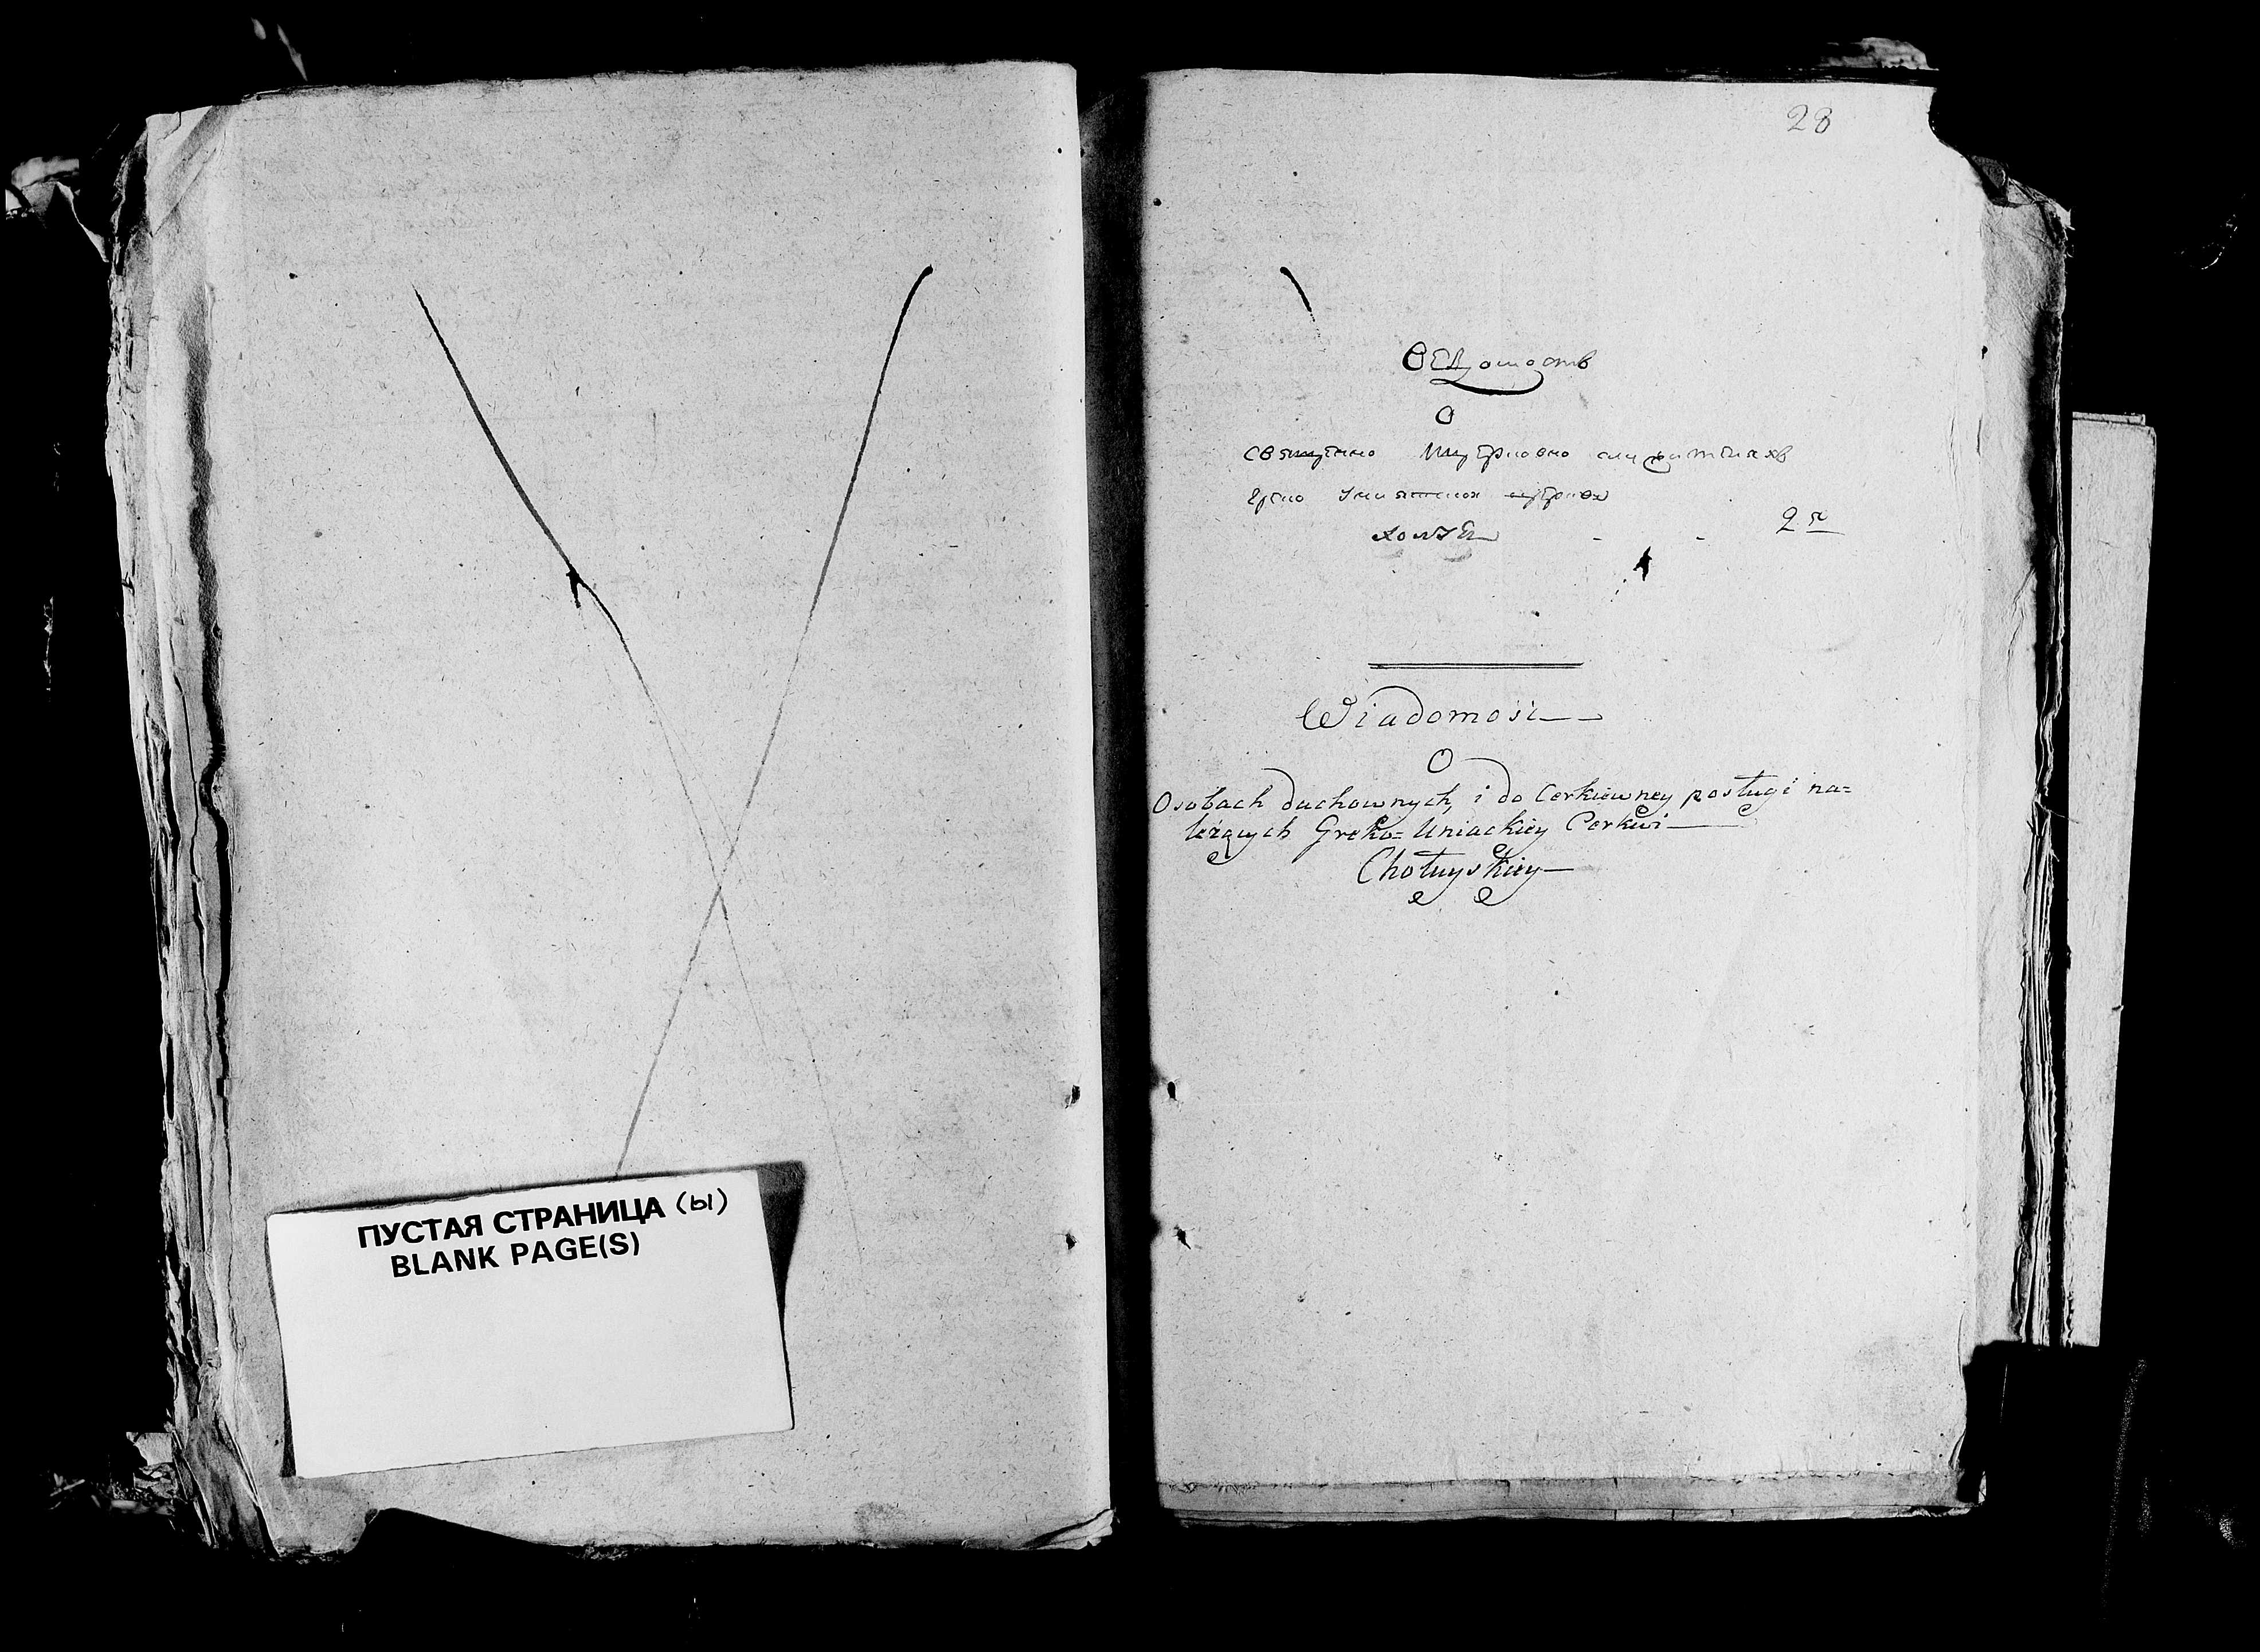 ПУСТАЯ СТРАНИЦА (ы)
BLANK PAGE(S)
28
Ведомость
О
священно церковно служителях
греко униатской церкви
2я
Wiadomość
O
Osobach duchownych, i do Cerkiewney posługi na=
leżących Greko=Uniackiey Cerkwi
Chołuyskiey